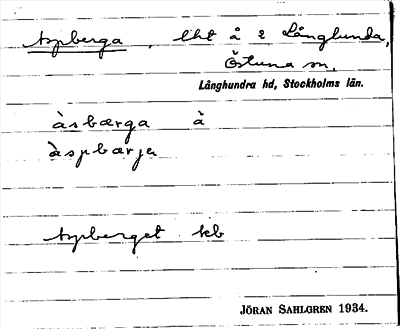 Aspberga, lht å ä Långlunda,
Östuna sn.
Långhundra hd, Stockholms län.
àsbærga à
àspbærja
Aspberget kb
JÖRAN SAHLGREN 1934.